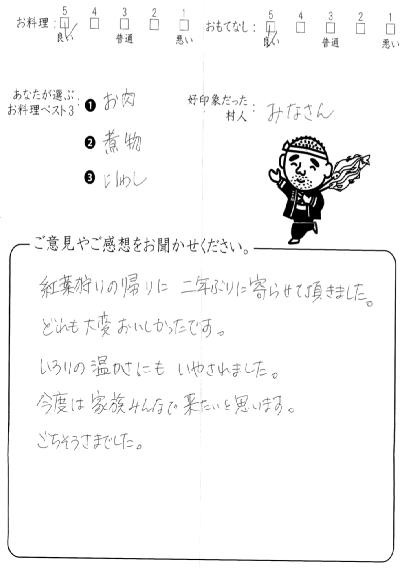 お料理： 5 4 3 2 1 おもてなし： 5 4 3 2 1
良い 普通 悪い 良い 普通 悪い
あなたが選ぶ
お料理ベスト3： ❶ お肉
❷ 煮物
❸ にめし
好印象だった
村人： みなさん
ご意見やご感想をお聞かせください。
紅葉狩りの帰りに 二年ぶりに寄らせて頂きました。
どれも大変おいしかったです。
いろりの温かさにも いやされました。
今度は家族みんなで来たいと思います。
ごちそうさまでした。